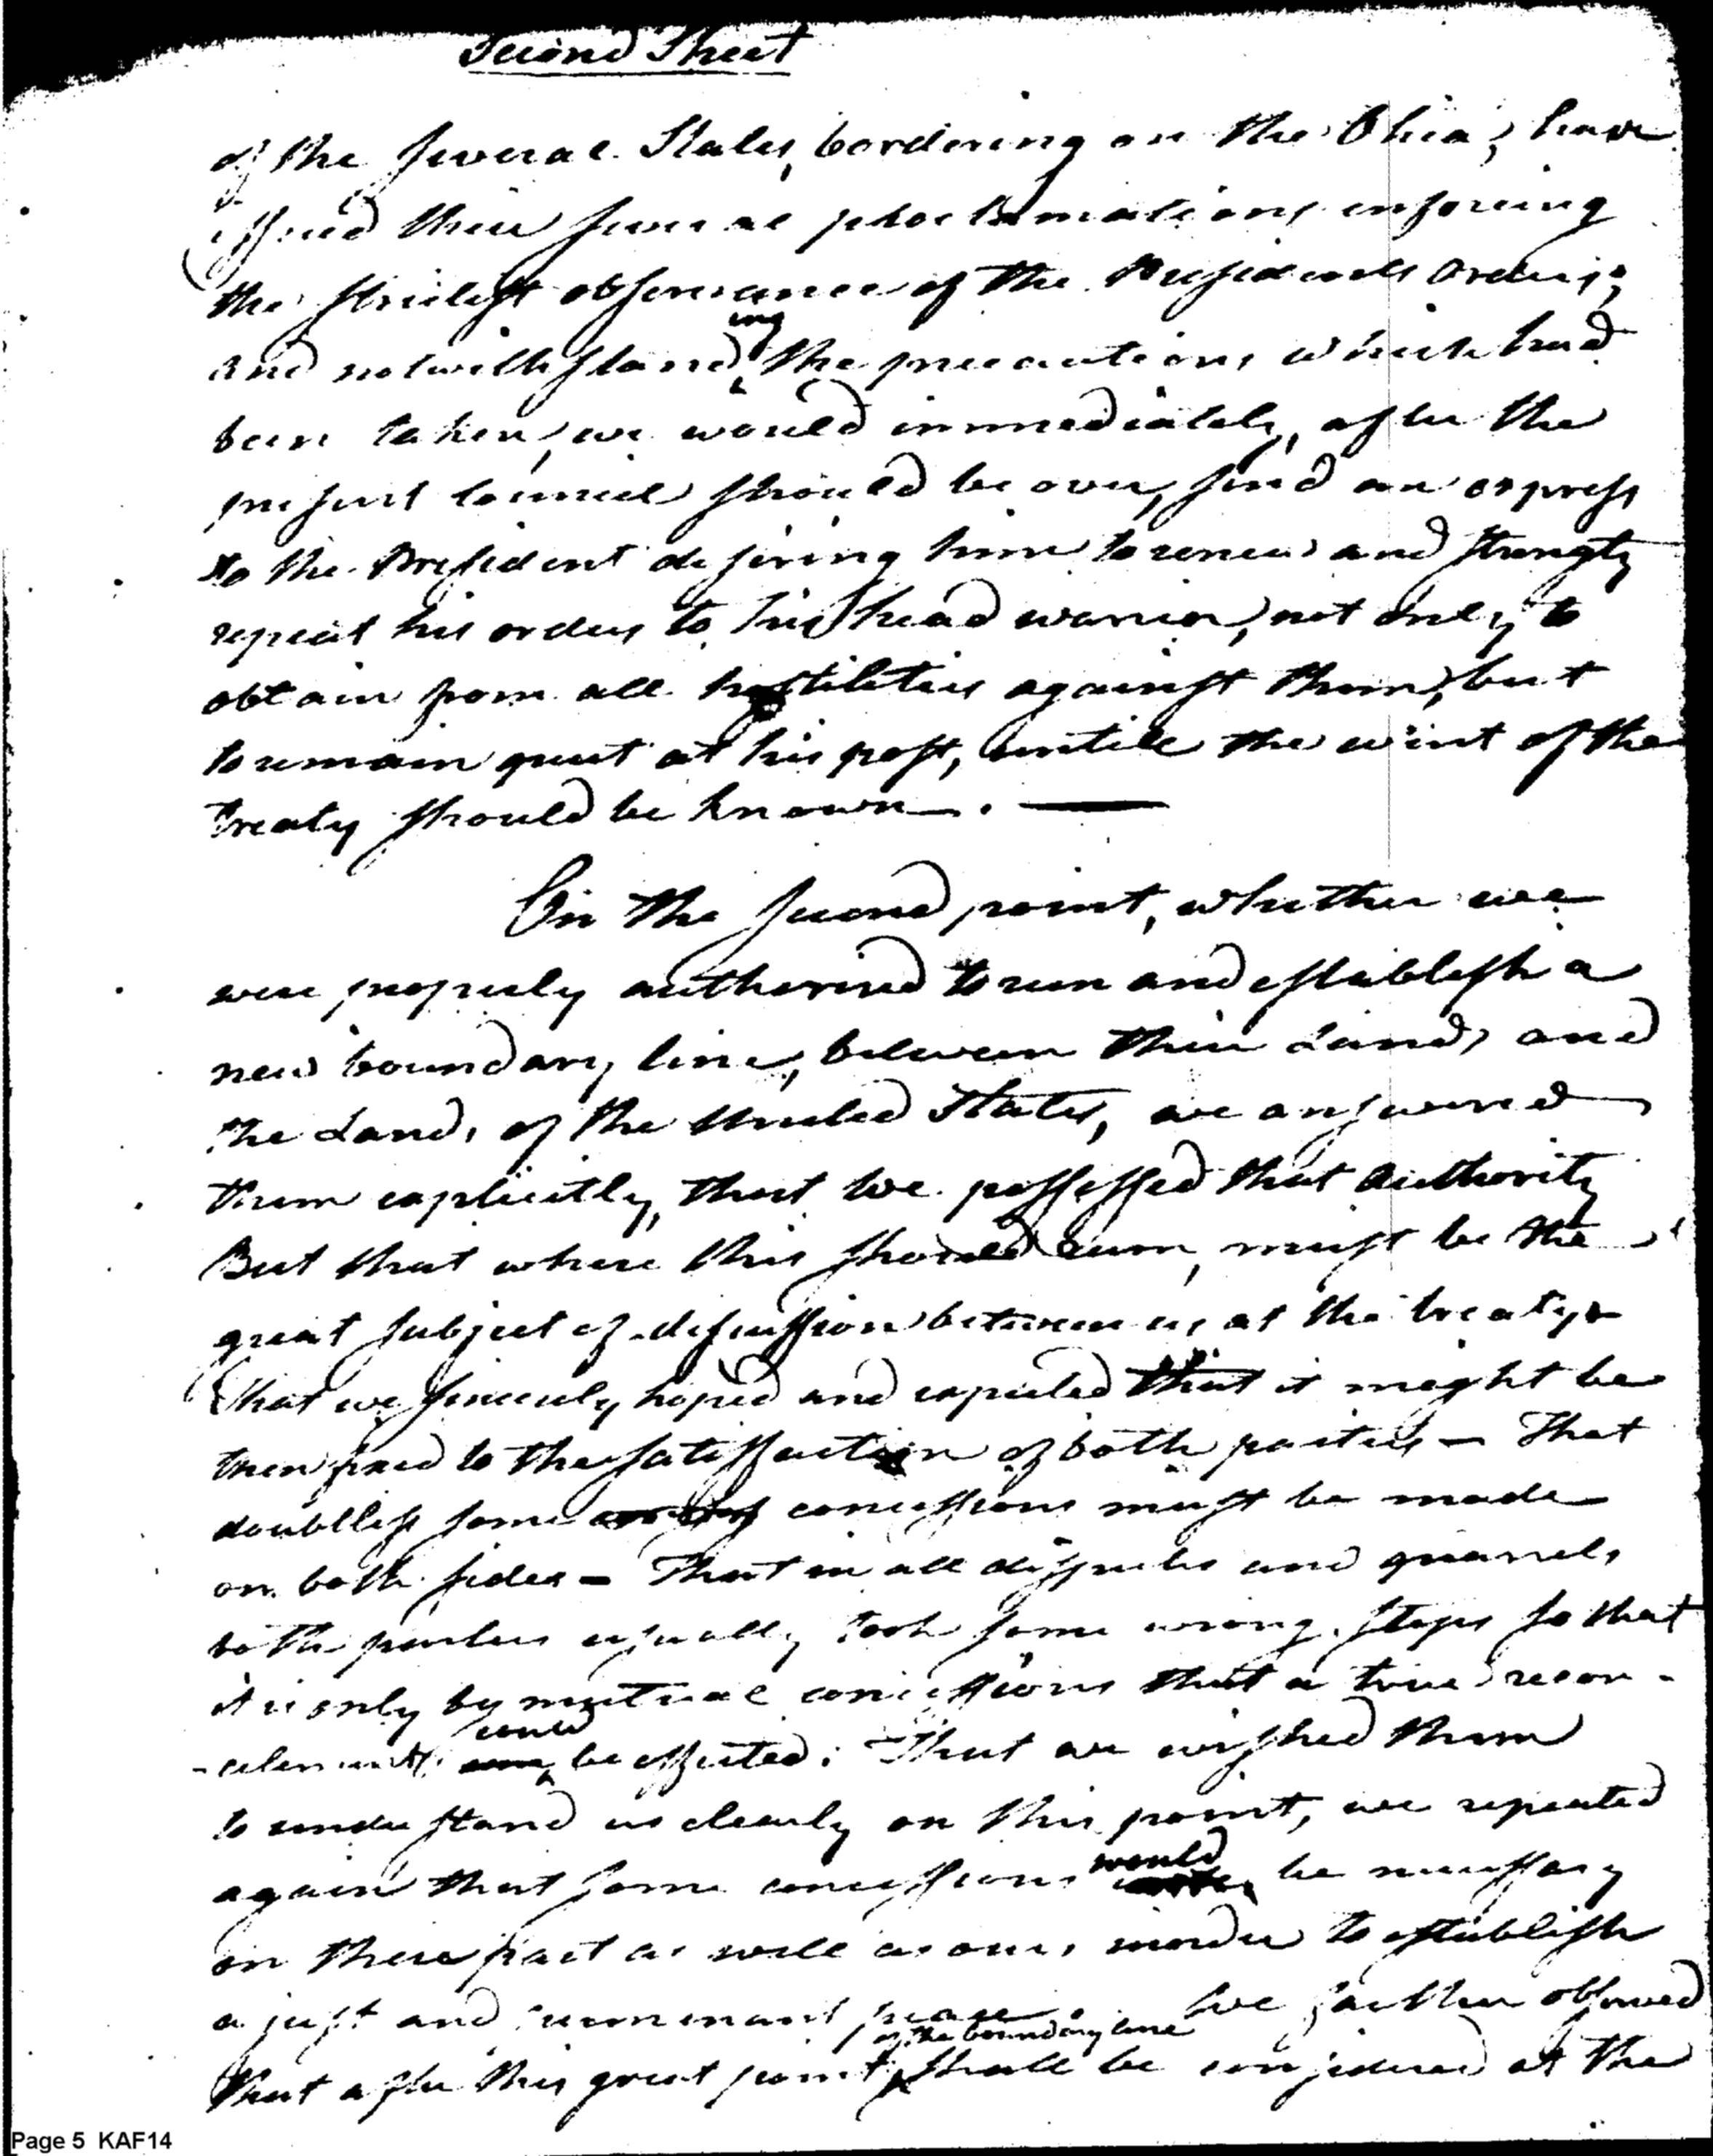 Second Sheet
of the several States, bordering on the Ohio, have
issued their several proclamations enforcing
the strictest observance of the Presidents orders;
and notwithstand^ing the precautions which had
been taken, we would immediately, after the
present Council should be over, send an express
to the President desiring him to renew and strongly
repeat his orders to his head warrior, not only to
obtain from all hostilities against them, but
to remain quiet at his post, untill the event of the
treaty should be known. —
On the second point, whether we
were properly authorised to run and establish a
new boundary line, between their Lands and
the Lands of the United States, we answered
them explicitly, that we possessed that authority
But that where this should run, must be the
great subject of discussion between us at the treaty &
that we sincerely hoped and expected that it might be
then fixed to the satisfaction of both parties - That
doubtless some concessions must be made
on both sides - That in all disputes and quarrels
both parties usually took some wrong steps so that
it is only by mutual concessions that a true recon-
-cilement could be effected: That we wished them
to understand us clearly on this point, we repeated
again that some concessions would be necessary
on there part as well as ours, inorder to establish
a just and permanent peace. We farther observed
that after this great point of the boundary line shall be considered at the
Page 5 KAF14